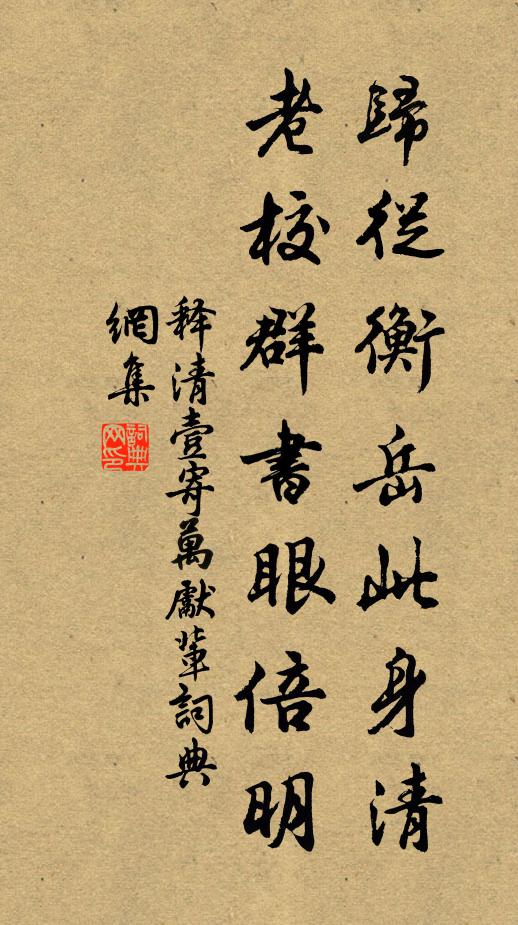 歸從衡岳此身清
老校群書眼倍明
释清壹寄萬獻輩詞典
網集
詞典
网印